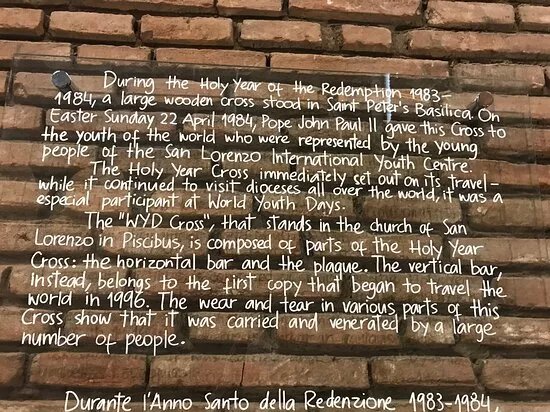 During the Holy Year of the Redemption 1983-
1984, a large wooden cross stood in Saint Peter's Basilica. On
Easter Sunday 22 April 1984, Pope John Paul II gave this Cross to
the youth of the world who were represented by the young
people of the San Lorenzo International Youth Centre.
The Holy Year Cross immediately set out on its travel-
while it continued to visit dioceses all over the world, it was a
especial participant at World Youth Days.
The "WYD Cross", that stands in the church of San
Lorenzo in Piscibus, is composed of parts of the Holy Year
Cross: the horizontal bar and the plaque. The vertical bar,
instead, belongs to the first copy that began to travel the
world in 1996. The wear and tear in various parts of this
Cross show that it was carried and venerated by a large
number of people.
Durante l'Anno Santo della Redenzione 1983-1984,